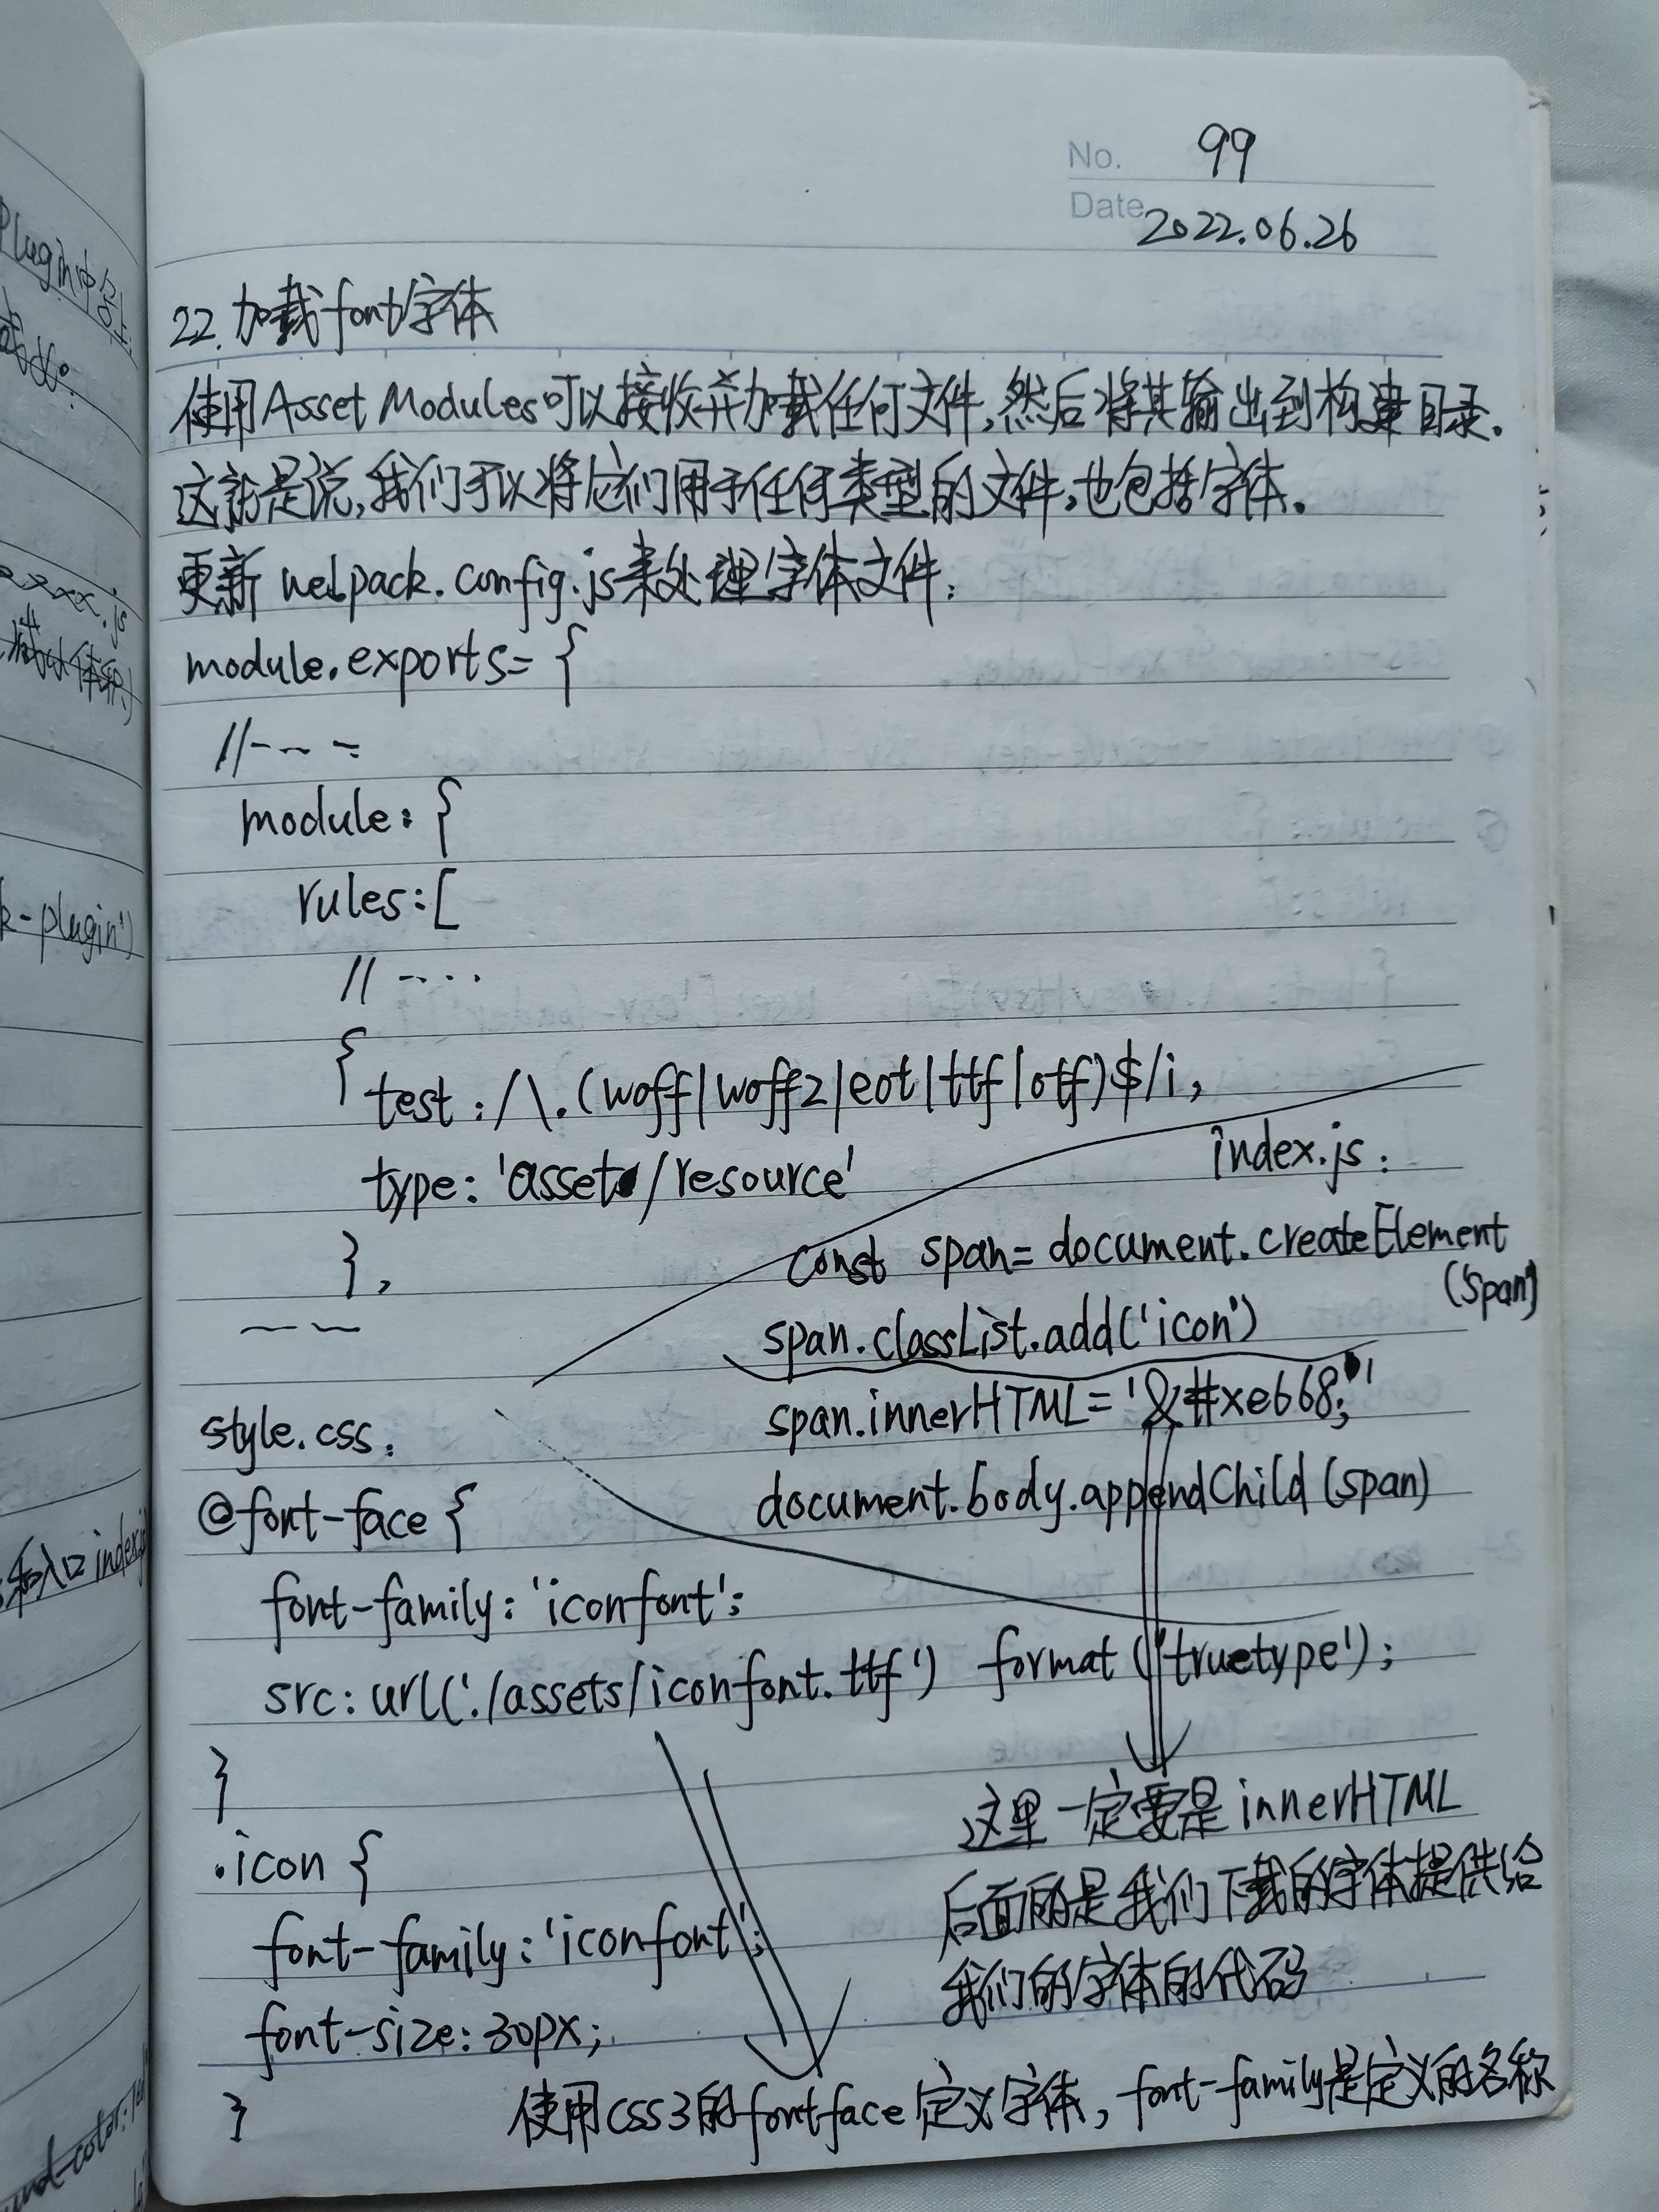 No. 99
Date 2022.06.26
22. 加载font字体
使用Asset Modules可以接收并加载任何文件,然后将其输出到构建目录。
这就是说,我们可以将它们用于任何类型的文件,也包括字体。
更新 webpack.config.js来处理字体文件:
module.exports= {
//----
module: {
rules:[
// ----
{
test: /\.(woff|woff2|eot|ttf|otf)$/i,
type: 'asset/resource'
},
~~
index.js:
const span= document.createElement
('span')
span.classList.add('icon')
span.innerHTML='&#xe668;'
document.body.appendChild(span)
style.css:
@font-face {
font-family: 'iconfont';
src: url('./assets/iconfont.ttf') format('truetype');
}
.icon {
font-family: 'iconfont';
font-size: 30px;
}
这里一定要是innerHTML
后面的是我们下载的字体提供给
我们的字体的代码
使用css3的fontface定义字体, font-family是定义的名称
Plugin中
xxx.js
k-plugin')
入口 index.j
und-color: